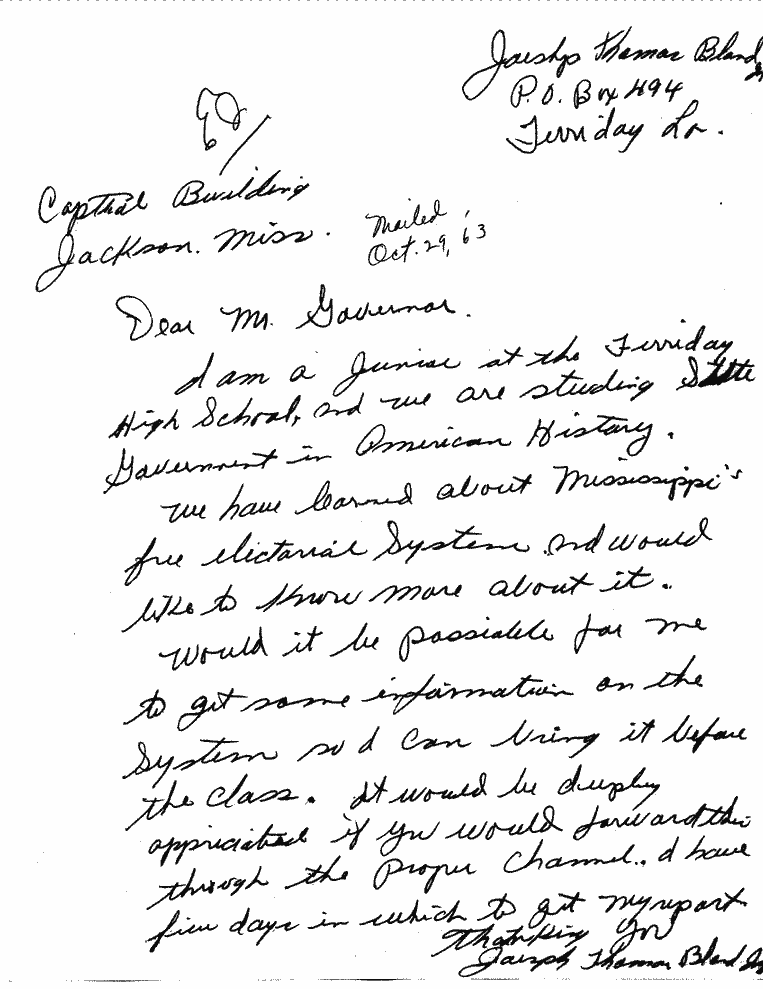 Joeshp Thomas Bland Jr
P.O. Box 494
Ferriday La.
Capthal Building
Jackson. Miss.
Mailed
Oct. 29, 63
Dear Mr. Governor.
I am a Junior at the Ferriday
High School, and we are studing State
Government in American History.
we have learned about Mississippi's
free electorial System and would
like to know more about it.
Would it be possiable for me
to get some information on the
System so I can bring it before
the class. It would be deeply
appriciated if you would forward this
through the proper channel. I have
five days in which to get my report
thanking you
Joesph Thomas Bland Jr